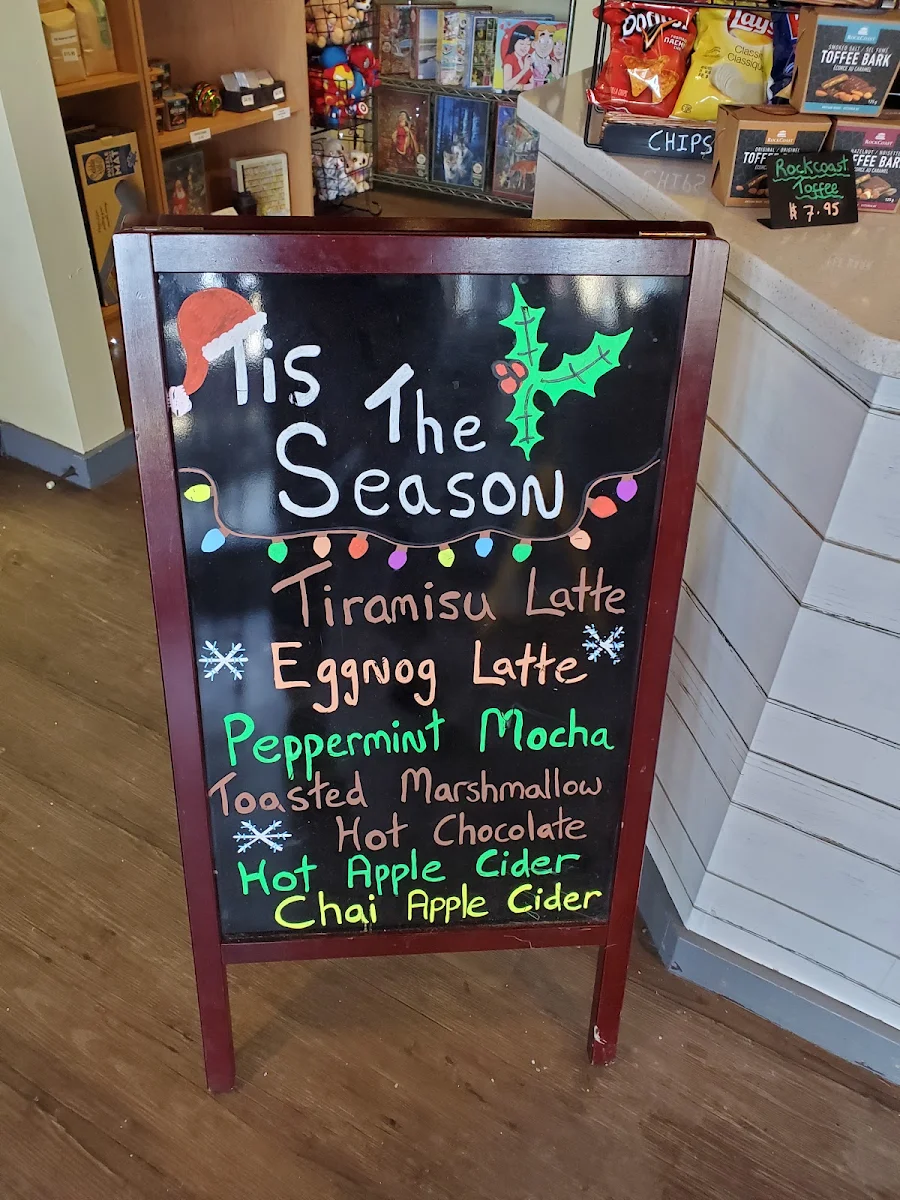 Doritos
NACHO
Lay's
Classic
Classique
ROCKCOAST
SMOKED SALT / SEL FUMÉ
TOFFEE BARK
ÉCORCE AU CARAMEL
CHIPS
ROCKCOAST
ORIGINAL / ORIGINAL
ROCKCOAST
HAZELNUT / NOISETTE
Rockcoast
Toffee
$ 7.95
Tis
The
Season
Tiramisu Latte
Eggnog Latte
Peppermint Mocha
Toasted Marshmallow
Hot Chocolate
Hot Apple Cider
Chai Apple Cider